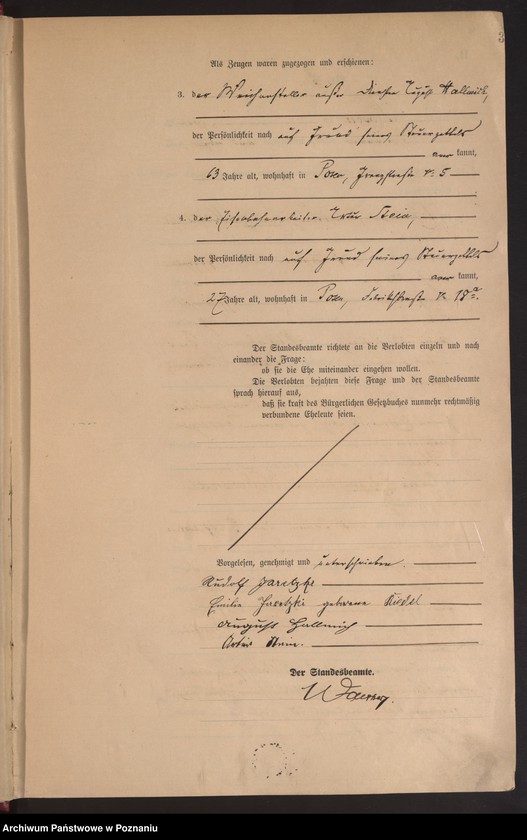 3
Als Zeugen waren zugezogen und erschienen:
3. der Weichensteller außer Diensten August Hallmich,
der Persönlichkeit nach auf Grund seines Steuerzettels
kannt,
63 Jahre alt, wohnhaft in Posen, Straße № 5
4. der Eisenbahnarbeiter Artur Stein,
der Persönlichkeit nach auf Grund seines Steuerzettels
kannt,
27 Jahre alt, wohnhaft in Posen, Fabrikstraße № 18a.
Der Standesbeamte richtete an die Verlobten einzeln und nach
einander die Frage:
ob sie die Ehe miteinander eingehen wollen.
Die Verlobten bejahten diese Frage und der Standesbeamte
sprach hierauf aus,
daß sie kraft des Bürgerlichen Gesetzbuches nunmehr rechtmäßig
verbundene Eheleute seien.
Vorgelesen, genehmigt und unterschrieben.
Rudolf Jaretzki
Emilie Jaretzki geborene Riedel
August Hallmich
Artur Stein.
Der Standesbeamte.
Archiwum Państwowe w Poznaniu